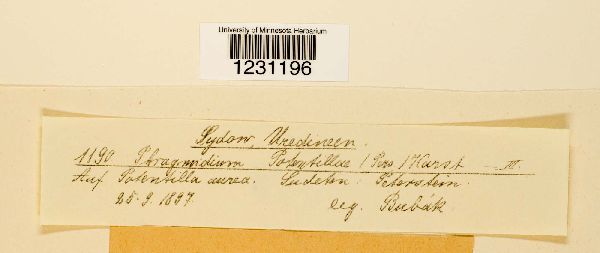 University of Minnesota Herbarium
1231196
Sydow, Uredineen.
1190 Phragmidium Potentillae (Pers) Karst — III.
Auf Potentilla aurea. Sudeten: Peterstein.
25. 9. 1897. leg. Bubák.